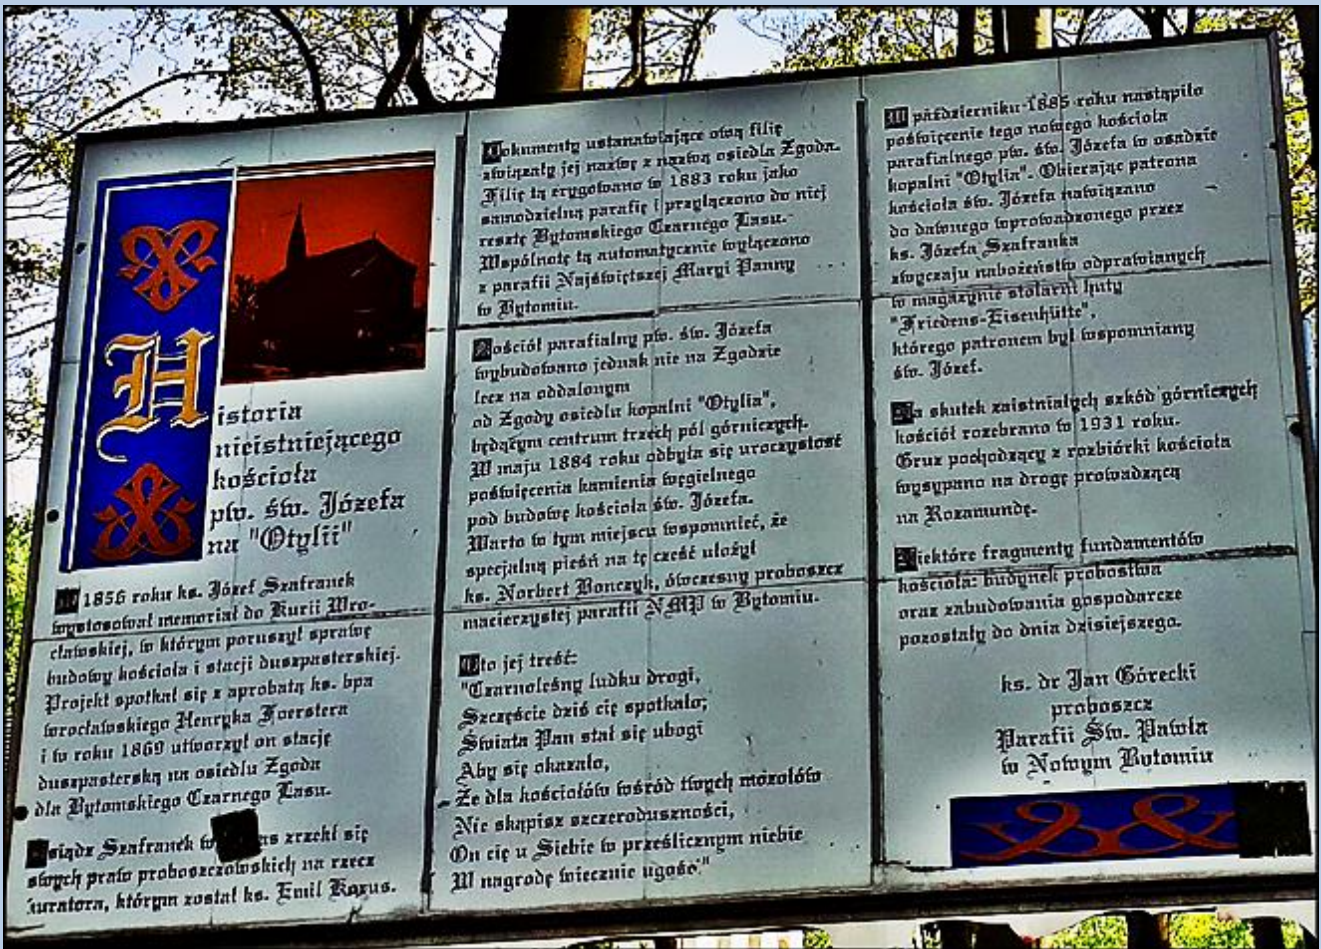 Historia
nieistniejącego
kościoła
pw. św. Józefa
na "Otylii"
W 1856 roku ks. Józef Szafranek
wystosował memoriał do Kurii Wro-
cławskiej, w którym poruszył sprawę
budowy kościoła i stacji duszpasterskiej.
Projekt spotkał się z aprobatą ks. bpa
wrocławskiego Henryka Foerstera
i w roku 1869 utworzył on stację
duszpasterską na osiedlu Zgoda
dla Bytomskiego Czarnego Lasu.
Ksiądz Szafranek zrzekł się
swych praw proboszczowskich na rzecz
kuratora, którym został ks. Emil Kozus.
Dokumenty ustanawiające ową filię
związały jej nazwę z nazwą osiedla Zgoda.
Filię tą erygowano w 1883 roku jako
samodzielną parafię i przyłączono do niej
resztę Bytomskiego Czarnego Lasu.
Wspólnotę tą automatycznie wyłączono
z parafii Najświętszej Maryi Panny
w Bytomiu.
Kościół parafialny pw. św. Józefa
wybudowano jednak nie na Zgodzie
lecz na oddalonym
od Zgody osiedlu kopalni "Otylia",
będącym centrum trzech pól górniczych.
W maju 1884 roku odbyła się uroczystość
poświęcenia kamienia węgielnego
pod budowę kościoła św. Józefa.
Warto w tym miejscu wspomnieć, że
specjalną pieśń na tę cześć ułożył
ks. Norbert Bonczyk, ówczesny proboszcz
macierzystej parafii NMP w Bytomiu.
Oto jej treść:
"Czarnoleśny ludku drogi,
Szczęście dziś cię spotkało;
Świata Pan stał się ubogi
Aby się okazało,
Że dla kościołów wśród twych mozołów
Nie skąpisz szczeroduszności,
On cię u Siebie w prześlicznym niebie
W nagrodę wiecznie ugości"
W październiku 1885 roku nastąpiło
poświęcenie tego nowego kościoła
parafialnego pw. św. Józefa w osadzie
kopalni "Otylia". Obierając patrona
kościoła św. Józefa nawiązano
do dawnego wprowadzonego przez
ks. Józefa Szafranka
zwyczaju nabożeństw odprawianych
w magazynie stolarni huty
"Friedens-Eisenhütte",
którego patronem był wspomniany
św. Józef.
Na skutek zaistniałych szkód górniczych
kościół rozebrano w 1931 roku.
Gruz pochodzący z rozbiórki kościoła
wysypano na drogę prowadzącą
na Rozamundę.
Niektóre fragmenty fundamentów
kościoła: budynek probostwa
oraz zabudowania gospodarcze
pozostały do dnia dzisiejszego.
ks. dr Jan Górecki
proboszcz
Parafii Św. Pawła
w Nowym Bytomiu